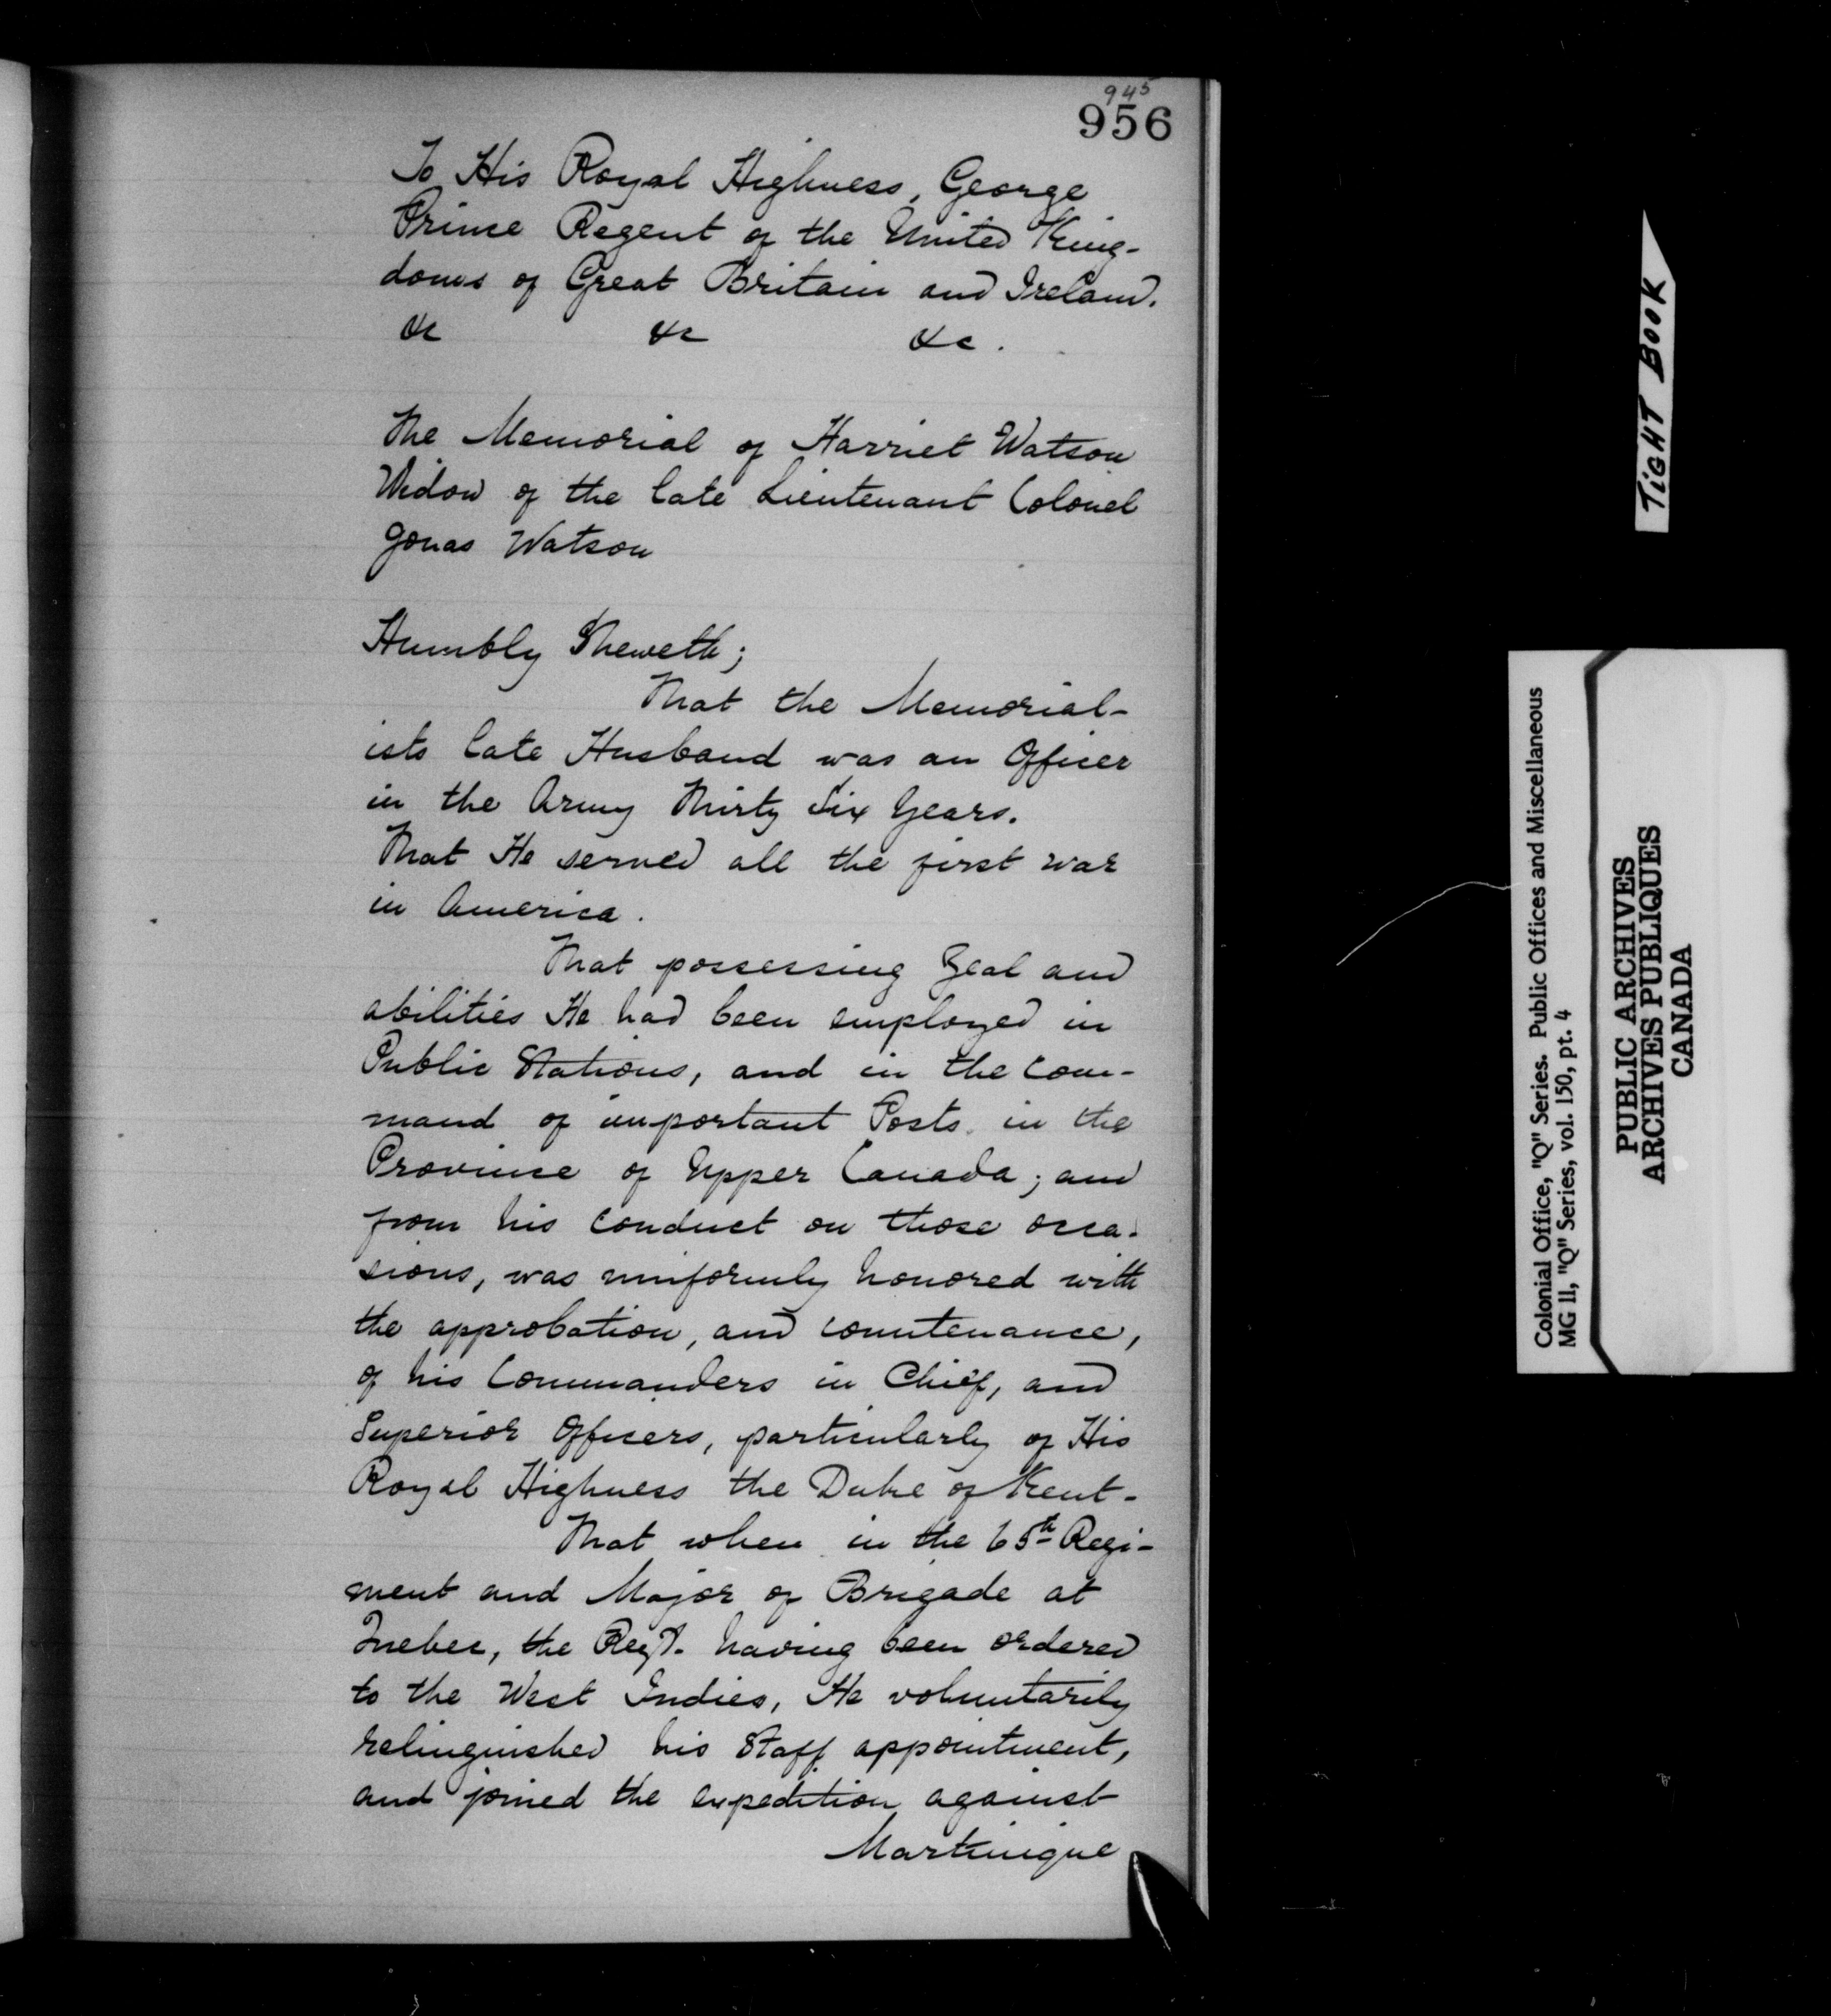 945
956
To His Royal Highness, George
Prince Regent of the United King-
doms of Great Britain and Ireland.
&c &c &c.
The Memorial of Harriet Watson
Widow of the late Lieutenant Colonel
Jonas Watson
Humbly Sheweth;
That the Memorial-
ists late Husband was an Officer
in the Army Thirty Six Years.
That He served all the first war
in America.
That possessing Zeal and
abilities He had been employed in
Public Stations, and in the Com-
mand of important Posts in the
Province of Upper Canada; and
from his conduct on those occa-
sions, was uniformly honored with
the approbation, and countenance,
of his Commanders in Chief, and
Superior Officers, particularly of His
Royal Highness the Duke of Kent-
That when in the 65th Regi-
ment and Major of Brigade at
Quebec, the Regt. having been ordered
to the West Indies, He voluntarily
relinquished his Staff appointment,
and joined the expedition against
Martinique
TIGHT BOOK
Colonial Office, "Q" Series. Public Offices and Miscellaneous
MG 11, "Q" Series, vol. 150, pt. 4
PUBLIC ARCHIVES
ARCHIVES PUBLIQUES
CANADA